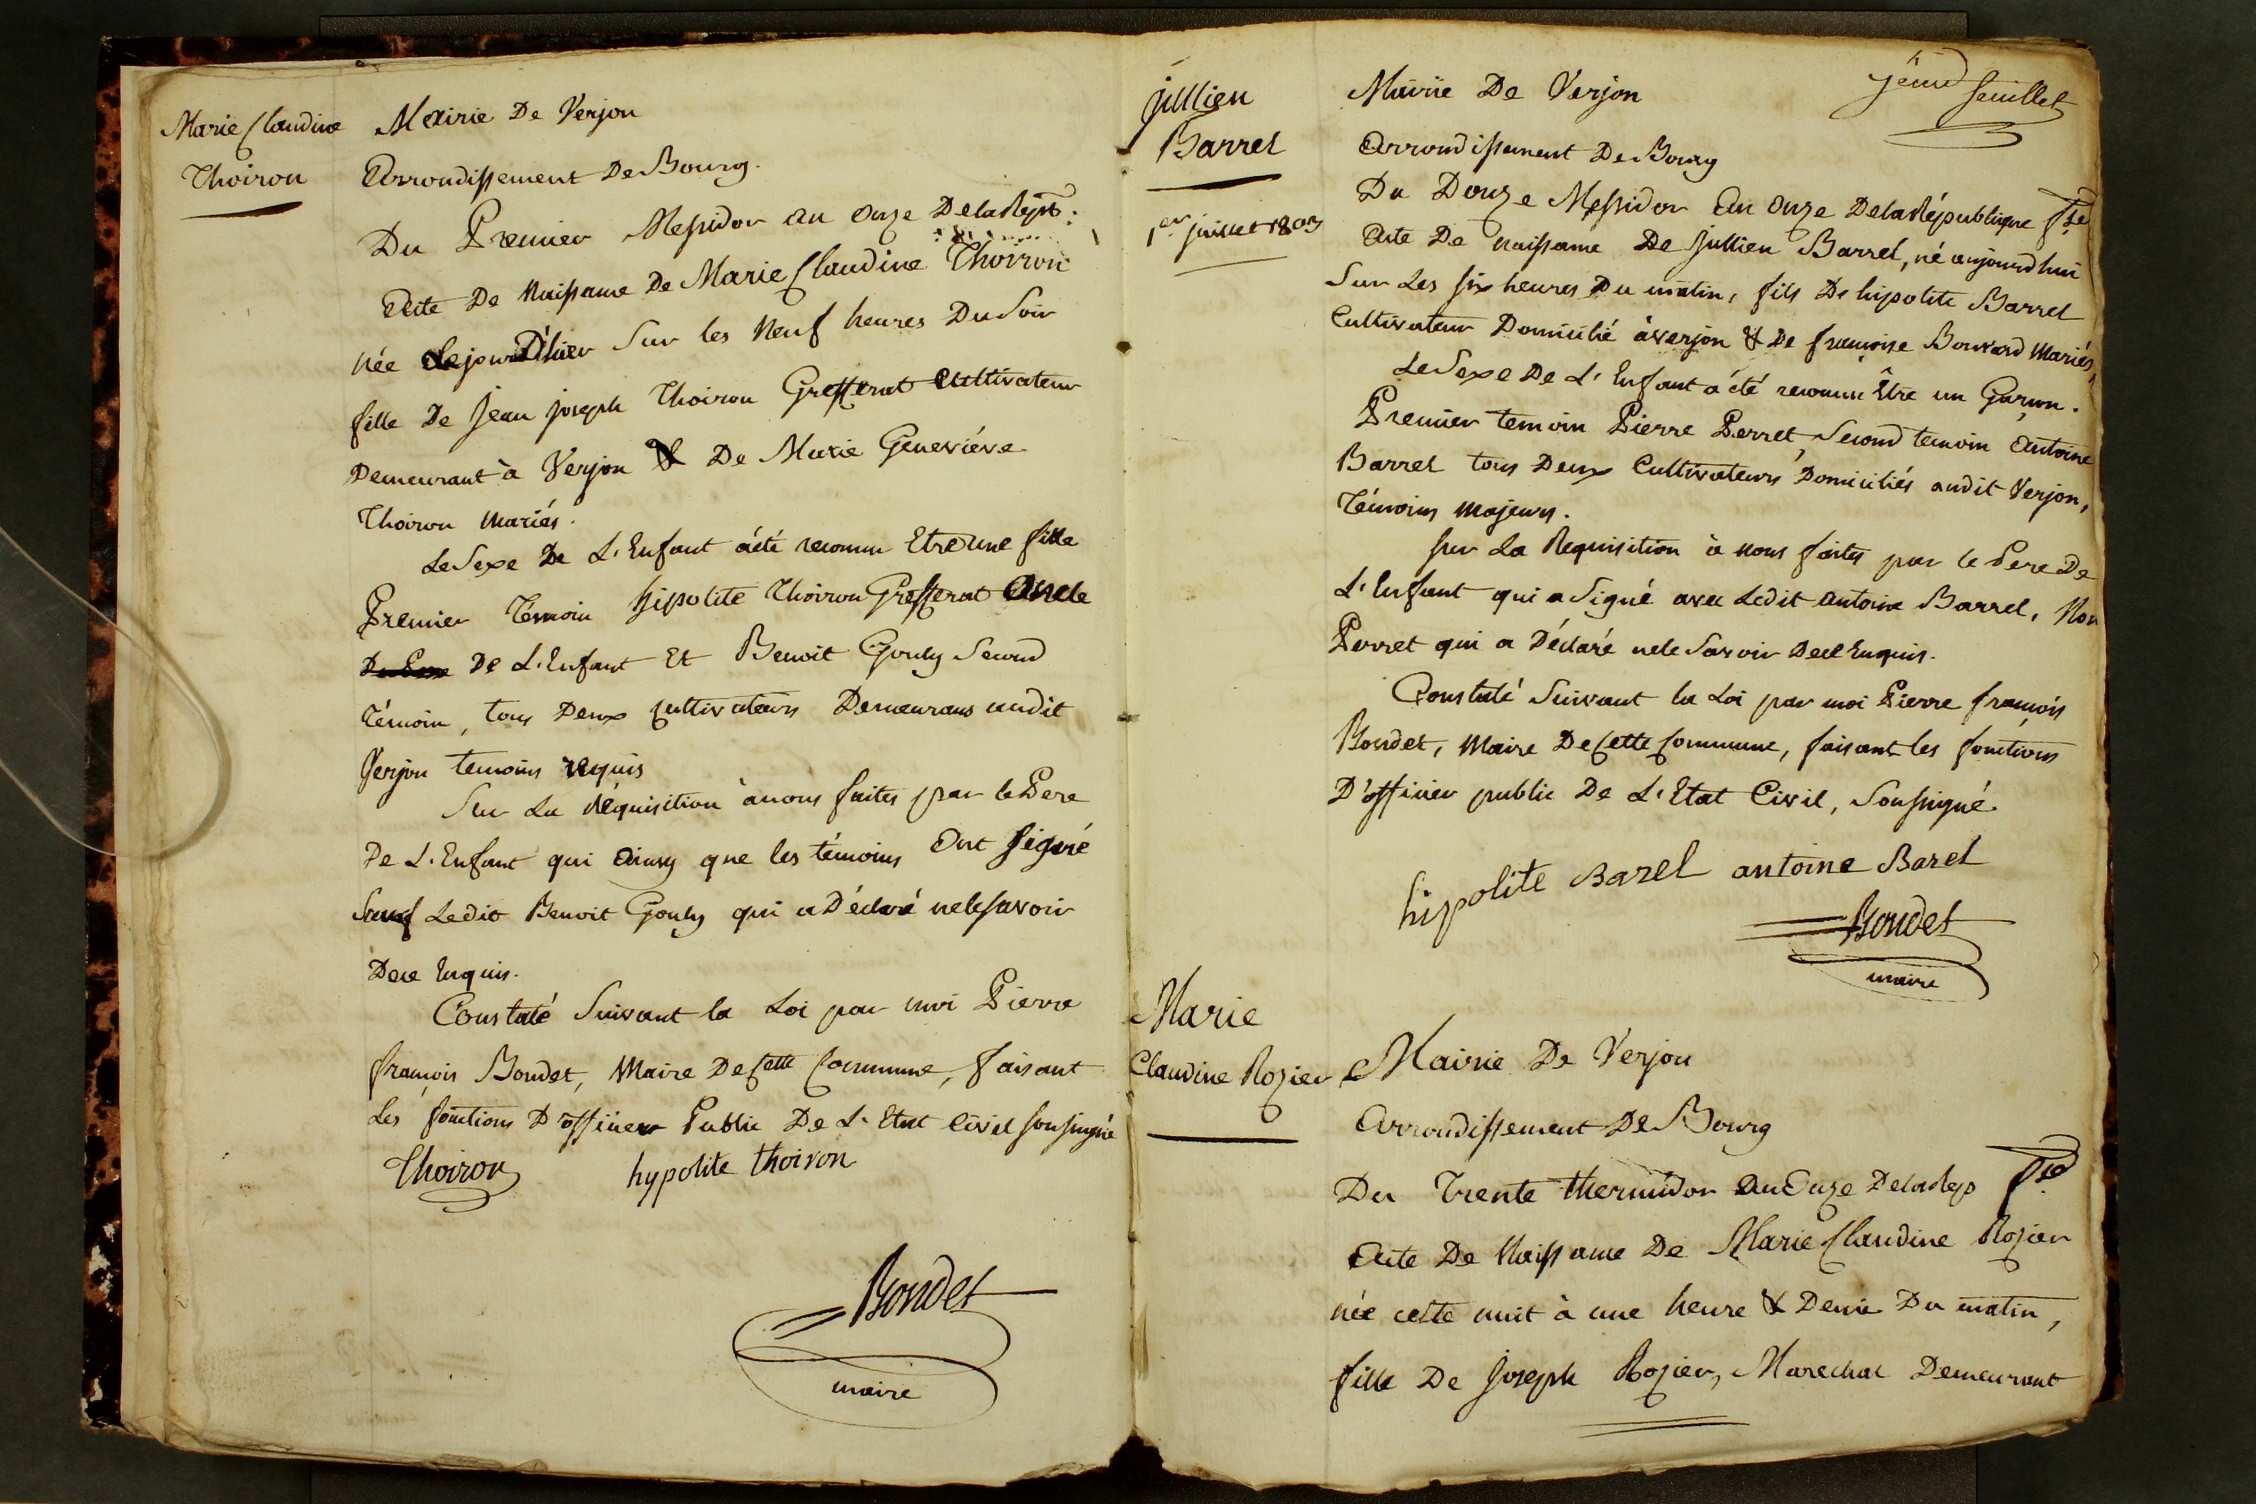 Marie Claudine
Thoiron
Mairie De Verjon
Arrondissement De Bourg.
Du Premier Messidor an onze De la Rep.
Acte De Naissance De Marie Claudine Thoiron
née Le jour D'hier Sur les Neuf heures Du Soir
fille De Jean joseph Thoiron Grefferat Cultivateur
Demeurant à Verjon & De Marie Geneviéve
Thoiron Mariés.
Le Sexe De L'Enfant a été reconnu Etre une fille
Premier Témoin hipolite Thoiron Grefferat Oncle
De L'Enfant Et Benoit Gouly Second
témoin, tous Deux Cultivateurs Demeurans audit
Verjon temoins requis
Sur La Réquisition à nous faites par le Pere
De L'Enfant qui Ainsy que les témoins Ont signé
Sauf Ledit Benoit Gouly qui a Déclaré ne le savoir
De ce Enquis.
Constaté Suivant la Loi par moi Pierre
françois Bondet, Maire De Cette Commune, faisant
Les fonctions D'officier Public De L'Etat Civil soussigné
Thoiron hypolite thoiron
Bondet
maire
feuillet
jullien
Barrel
1er juillet 1803
Mairie De Verjon
Arrondissement De Bourg
Du Douze Messidor An Onze De la République fse
Acte De naissance De Jullien Barrel, né aujourdhui
Sur Les six heures Du matin, fils De hipolite Barrel
Cultivateur Domicilié à Verjon & De françoise Bouvard Mariés,
Le Sexe De L'Enfant a été reconnu Être un Garçon.
Premier temoin Pierre Perret, Second temoin Antoine
Barrel tous Deux Cultivateurs Domiciliés audit Verjon,
Témoins Majeurs.
sur La Requisition à nous faites par le Pere De
L'Enfant qui a Signé avec Ledit Antoine Barrel, Non
Perret qui a Déclaré ne le Savoir De ce Enquis.
Constaté Suivant la Loi par moi Pierre françois
Bondet, Maire De Cette Commune, faisant les fonctions
D'officier public De L'Etat Civil, Soussigné.
hipolite Barel antoine Barel
Bondet
maire
Marie
Claudine Rozier
Mairie De Verjon
Arrondissement De Bourg
Du Trente thermidor An Onze De la Rep fse
Acte De Naissance De Marie Claudine Rozier
née cette nuit à une heure & Demie Du matin,
fille De Joseph Rozier, Marechal Demeurant